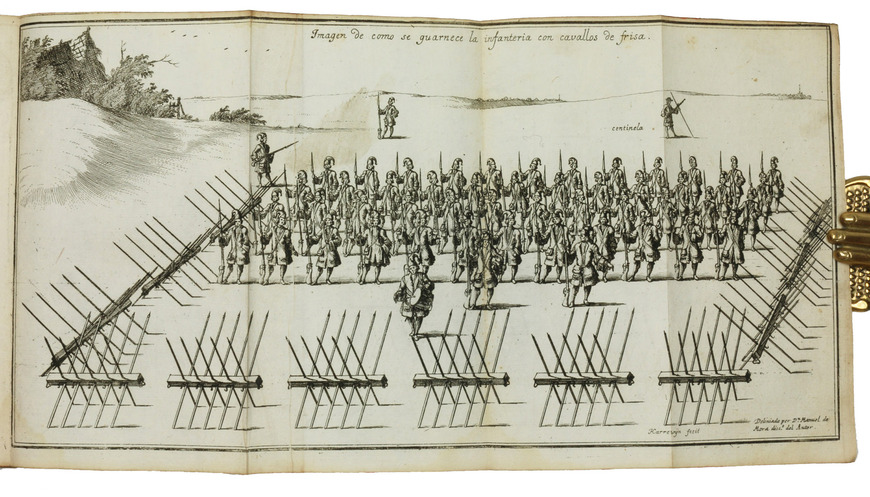 Imagen de como se guarnece la infanteria con cavallos de frisa.
centinela
Harrewijn fecit
Deliniado por Dn. Manuel de
Mora disc.º del Autor.